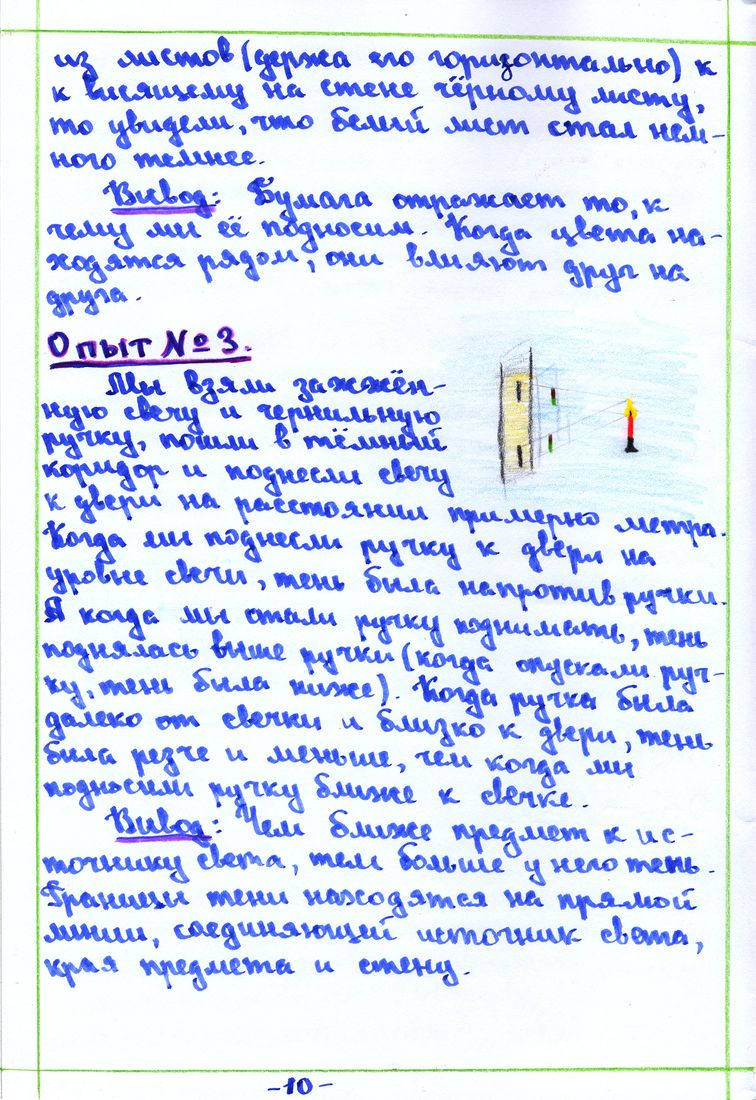 из листов (держа его горизонтально) к
к висящему на стене чёрному листу,
то увидели, что белый лист стал нем-
ного темнее.
Вывод: Бумага отражает то, к
чему мы её подносим. Когда цвета на-
ходятся рядом, они влияют друг на
друга.
Опыт № 3.
Мы взяли зажжён-
ную свечу и чернильную
ручку, пошли в тёмный
коридор и поднесли свечу
к двери на расстоянии примерно метра.
Когда мы поднесли ручку к двери на
уровне свечи, тень была напротив ручки.
А когда мы стали ручку поднимать, тень
поднялась выше ручки (когда опускали руч-
ку, тень была ниже). Когда ручка была
далеко от свечки и близко к двери, тень
была резче и меньше, чем когда мы
подносили ручку ближе к свечке.
Вывод: Чем ближе предмет к ис-
точнику света, тем больше у него тень.
Границы тени находятся на прямой
линии, соединяющей источник света,
края предмета и стену.
-10-